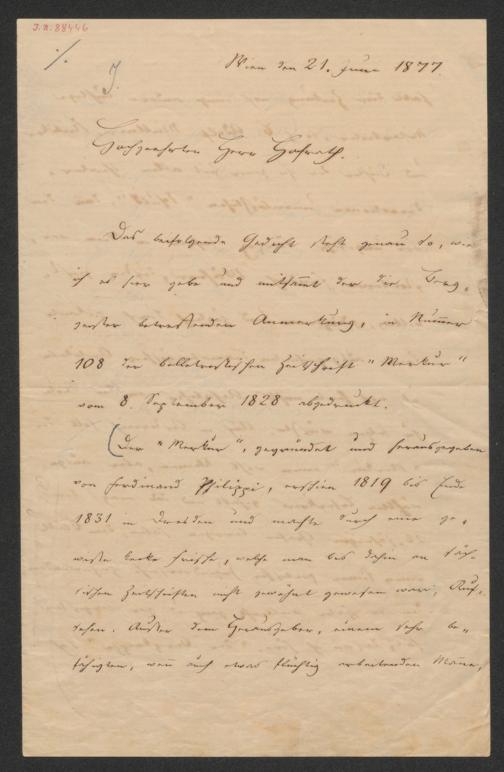 J.N. 88446
I.
Wien den 21. Juni 1877.
Hochgeehrter Herr Hofrath.
Das beifolgende Gedicht steht genau so, wie
ich es hier gebe und mitsamt der die Berg-
geister betreffenden Anmerkung, in Nummer
108 der belletristischen Zeitschrift "Merkur"
vom 8. September 1828 abgedruckt.
(Der "Merkur", gegründet und herausgegeben
von Ferdinand Philippi, erschien 1819 bis Ende
1831 in Dresden und machte durch eine ge-
wisse kecke Frische, welche man bis dahin an säch-
sischen Zeitschriften nicht gewöhnt gewesen war, Auf-
sehen. Außer dem Herausgeber, einem sehr be-
fähigten, wenn auch etwas flüchtig arbeitenden Manne,